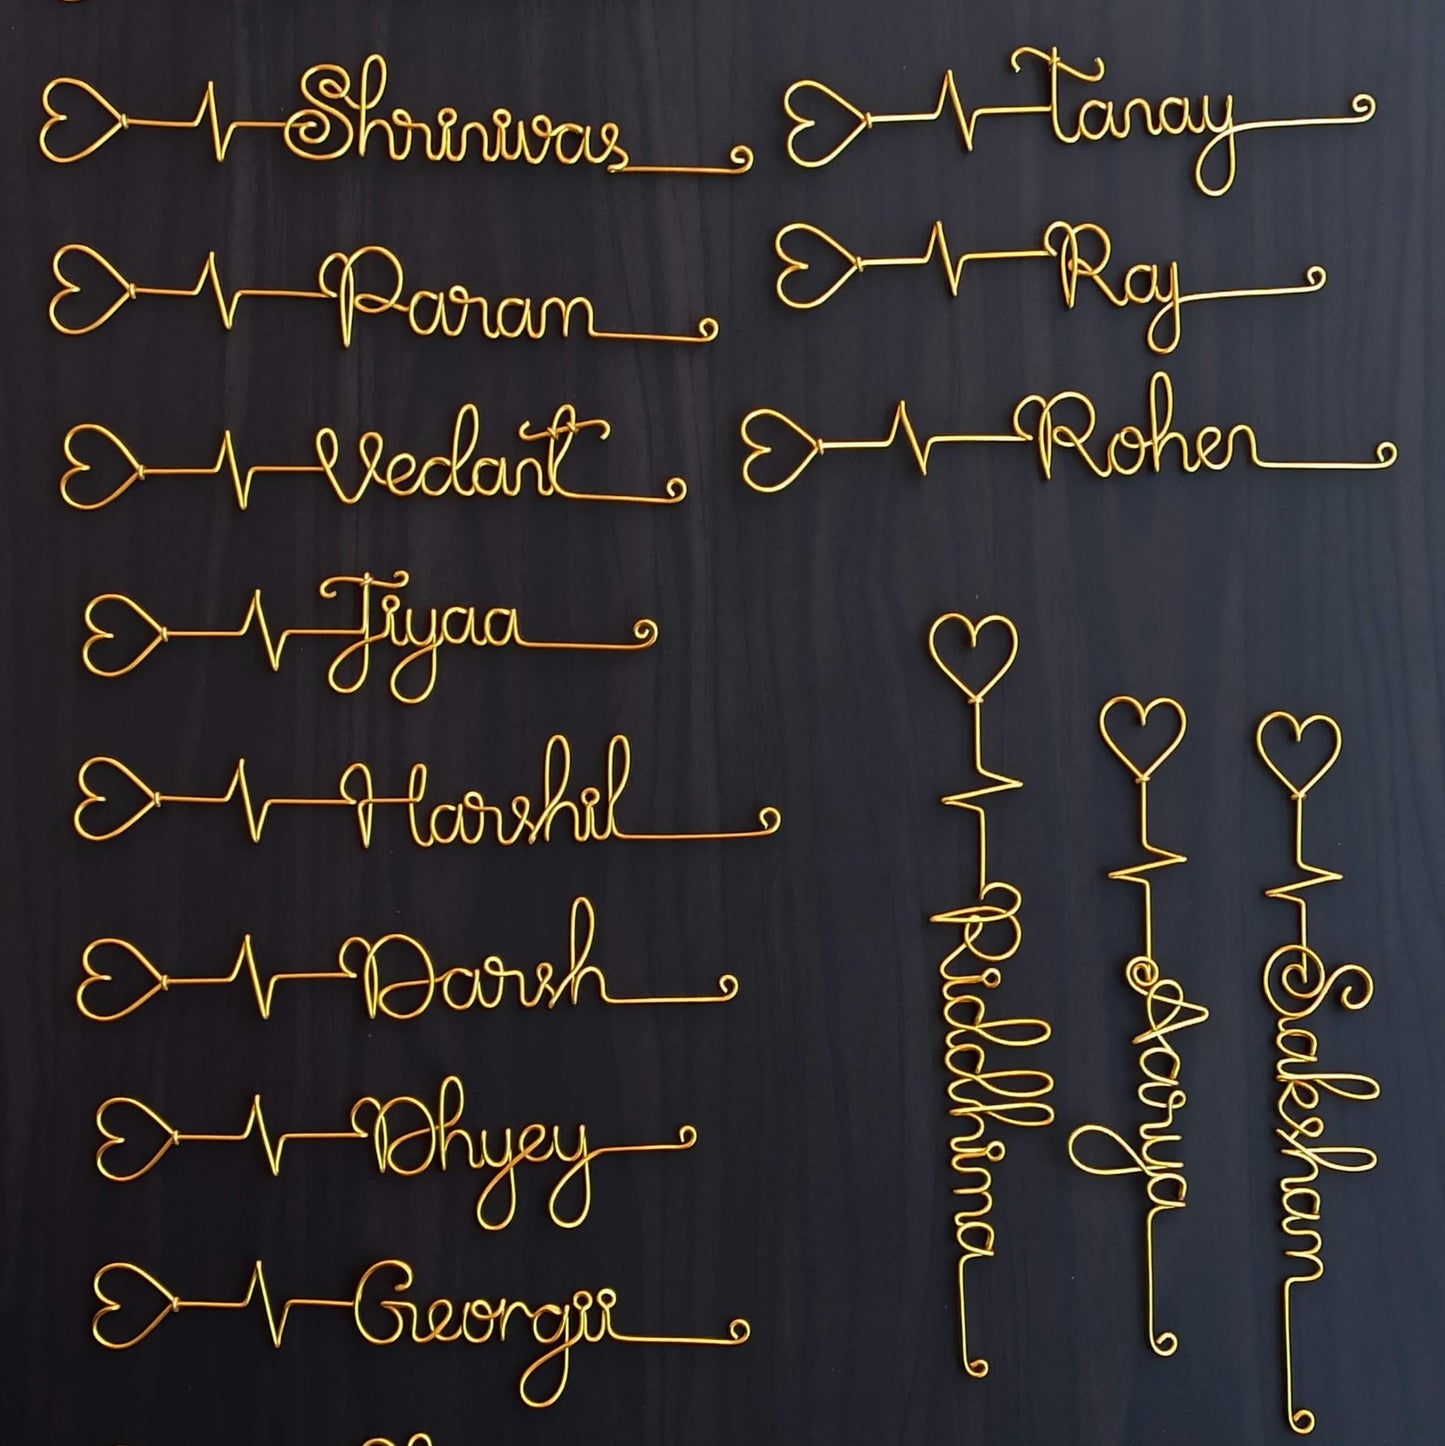 Shrinivas
Paran
Vedant
Jiyaa
Harshil
Darsh
Dhyey
Georgii
Tanay
Raj
Rohen
Riddhima
Aarya
Saksham